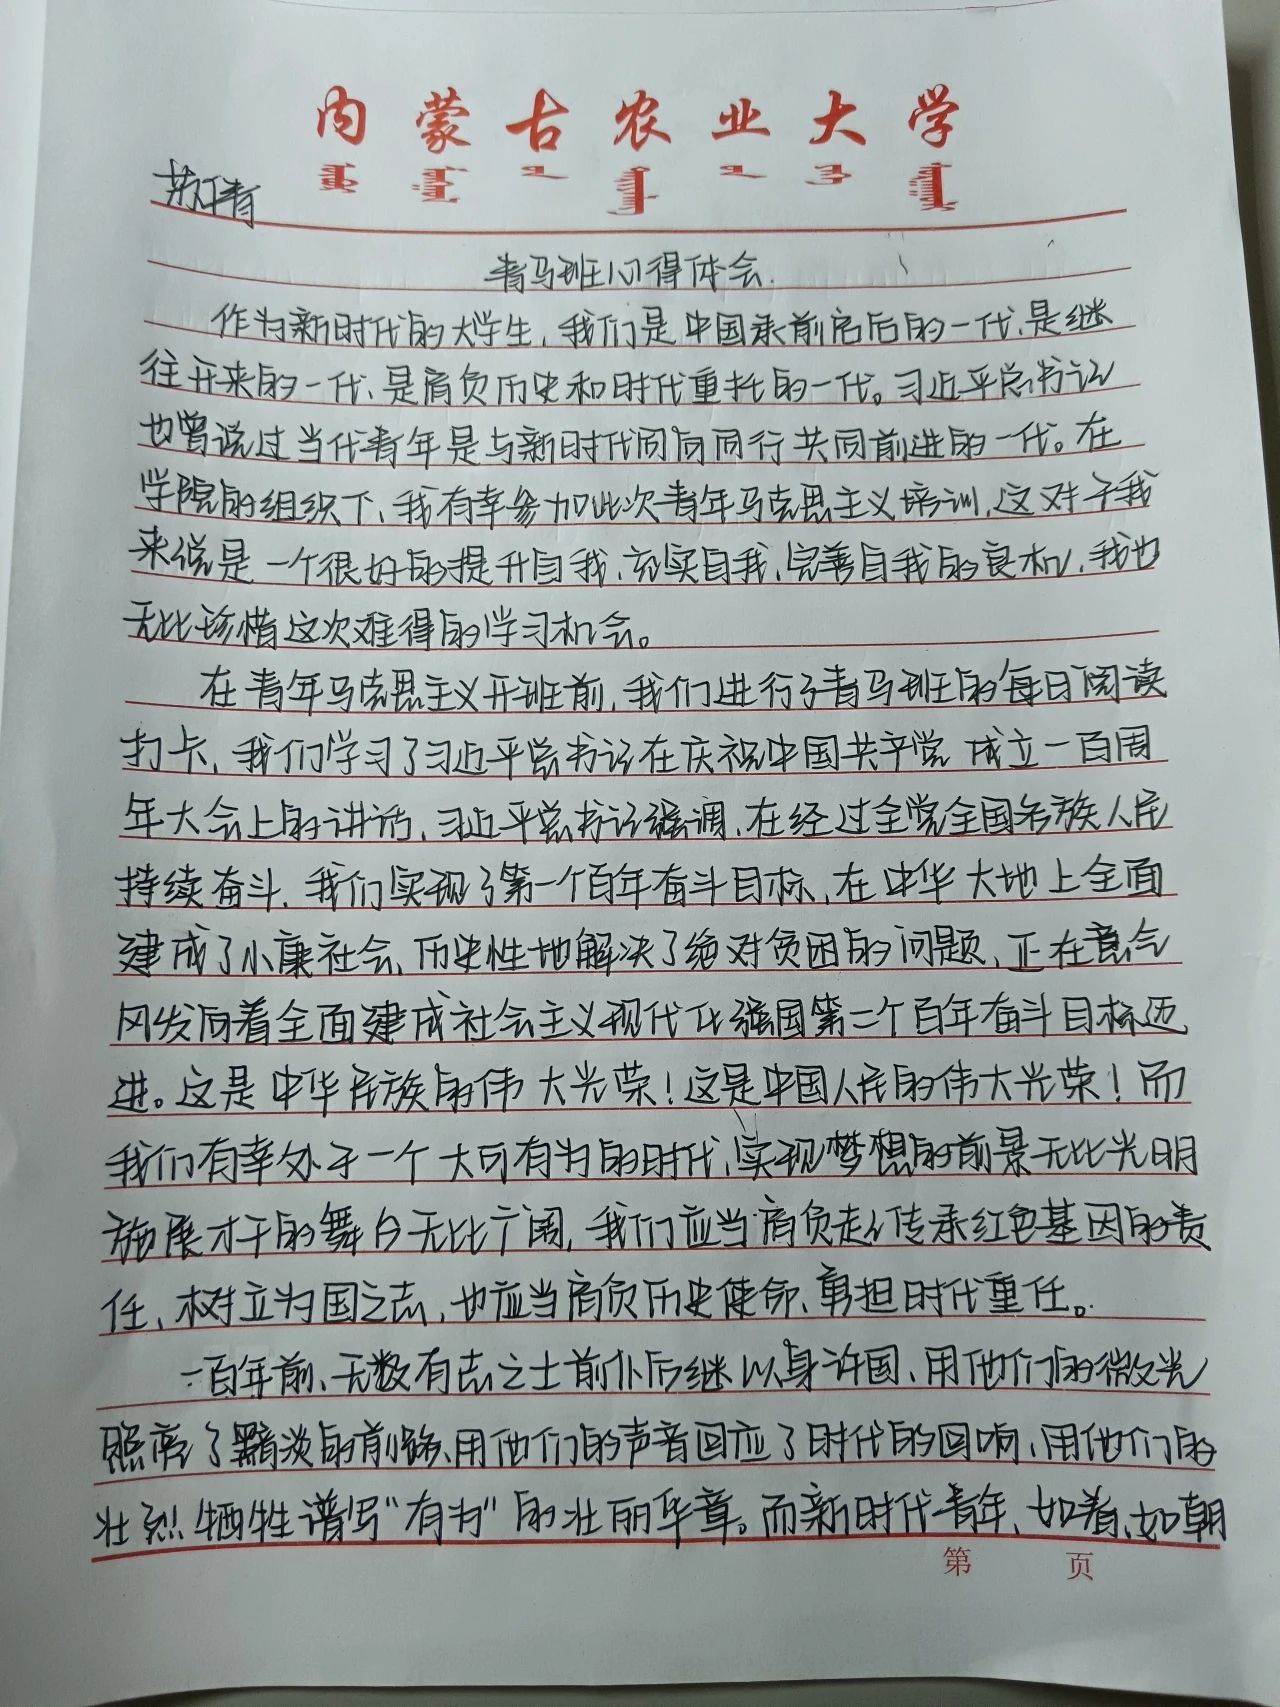 内蒙古农业大学
青马班心得体会.
作为新时代的大学生,我们是中国承前启后的一代、是继
往开来的一代、是肩负历史和时代重托的一代。习近平总书记
也曾说过当代青年是与新时代同向同行共同前进的一代。在
学院的组织下、我有幸参加此次青年马克思主义培训,这对于我
来说是一个很好的提升自我、充实自我、完善自我的良机,我也
无比珍惜这次难得的学习机会。
在青年马克思主义开班前,我们进行了青马班的每日阅读
打卡,我们学习了习近平总书记在庆祝中国共产党成立一百周
年大会上的讲话,习近平总书记强调,在经过全党全国各族人民
持续奋斗,我们实现了第一个百年奋斗目标,在中华大地上全面
建成了小康社会,历史性地解决了绝对贫困的问题,正在意气
风发向着全面建成社会主义现代化强国第二个百年奋斗目标迈
进。这是中华民族的伟大光荣!这是中国人民的伟大光荣!而
我们有幸处于一个大可有为的时代,实现梦想的前景无比光明
施展才干的舞台无比广阔,我们应当肩负起传承红色基因的责
任、树立为国之志,也应当肩负历史使命、勇担时代重任。
一百年前、无数有志之士前仆后继以身许国、用他们的微光
照亮了黯淡的前路、用他们的声音回应了时代的回响、用他们的
壮烈牺牲谱写"有为"的壮丽华章。而新时代青年、如春、如朝
第 页